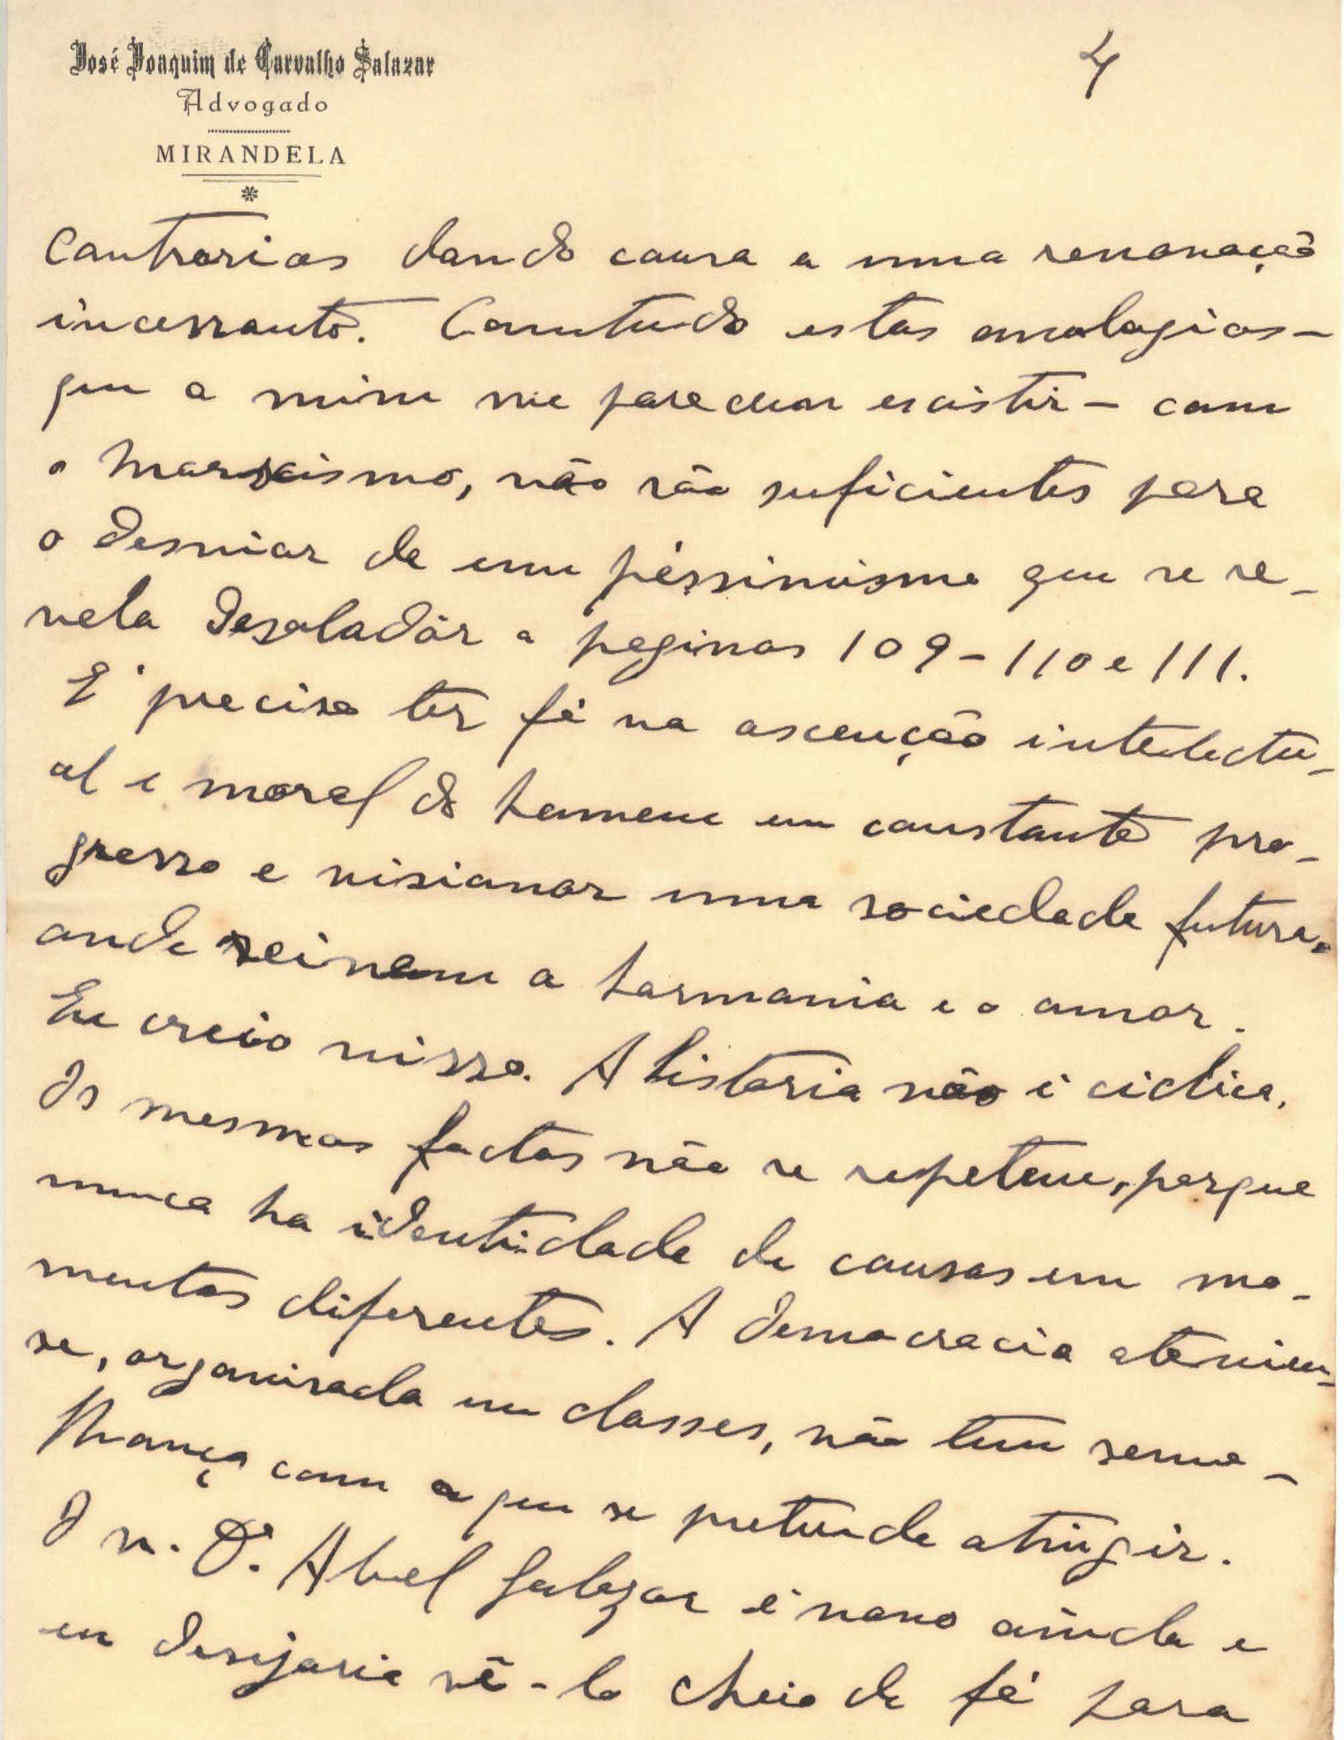 José Joaquim de Carvalho Salazar
Advogado
MIRANDELA
4
contrarias dando causa a uma renovação
incessante. Comtudo estas analogias -
que a mim me parecem existir - com
o marxismo, não são suficientes para
o desviar de um péssimismo que se re-
vela desoladôr a paginas 109-110 e 111.
E' preciso ter fé na ascenção intelectu-
al e moral do homem em constante pro-
gresso e visionar uma sociedade futura,
onde reinem a harmonia e o amor.
Eu creio nisso. A historia não é ciclica.
Os mesmos factos não se repetem, porque
nunca ha identidade de causas em mo-
mentos diferentes. A democracia atenien-
se, organisada em classes, não tem seme-
lhança com a que se pretende atingir.
O sr. Dr. Abel Salazar é novo ainda e
eu desejaria vê-lo cheio de fé para